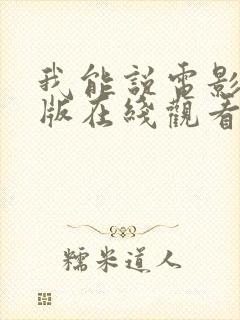 我能説電影
版在綫觀看
糯米道人